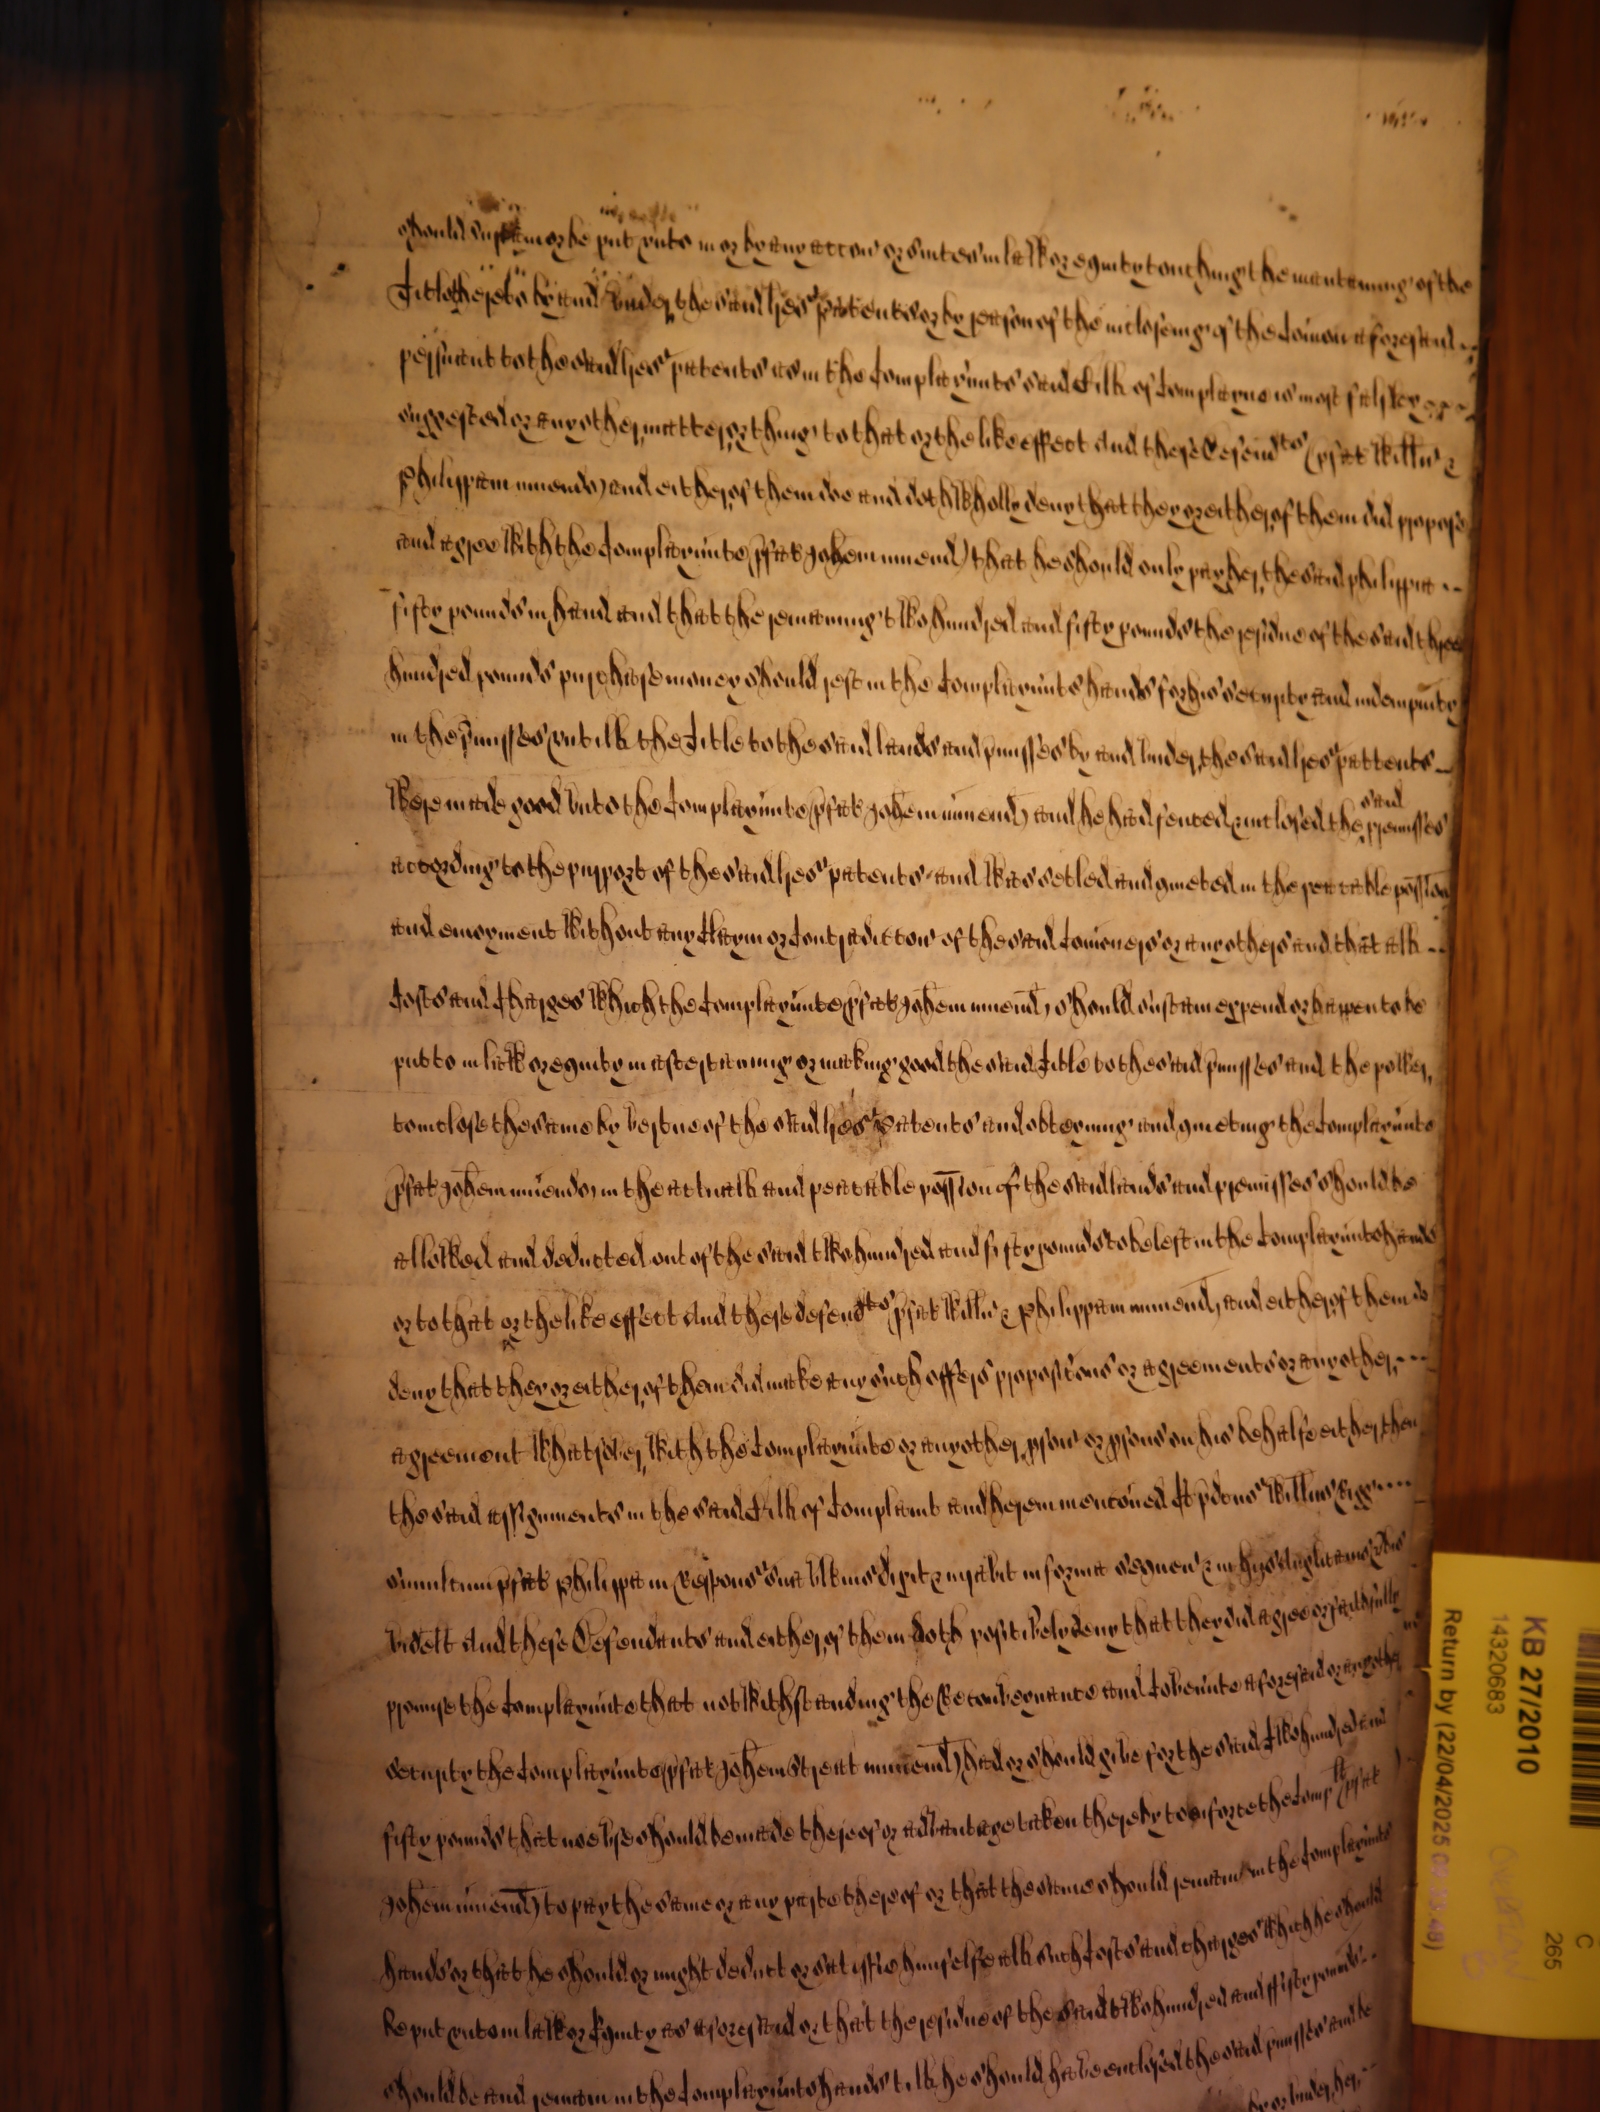 should susteine or be put unto in or by any accon or suites in law or equity touching the mainteining of the
Title thereto by and under the said lres pattents or by reason of the inclosing of the Com̄on aforesaid
persuant to the said lres pattents as in the Complaynants said Bill of Complayne is most falsley
suggested or any other matter or thing to that or the like effect And these Defend^ts (p̱fat Willm̄ &
Philippam inuendo) and either of them doe and doth wholly deny that they or either of them did propose
and agree with the Complaynante (p̱fat Johem inuend) that he should only pay her the said Philippa
fifty pounds in hand and that the remaining two hundred and fifty pounds the residue of the said three
hundred pounds purchase money should rest in the Complaynants hands for his security and indempnity
in the p̱misses untill the Title to the said lands and p̱misses by and under the said lres pattents
were made good unto the Complaynante (p̱fat Johem inuend) and he had fenced & inclosed the said premisses
according to the purport of the said lres patents and was setled and quieted in the peaceable possion
and enioyment without any Claym or Contradiccon of the said Com̄oners or any others and that all
Costs and Charges which the Complaynante (p̱fat Johem inuend) should sustain expend or happen to be
put to in law or equity in asserteining or making good the said Title to the said p̱misses and the power
to inclose the same by vertue of the said lres patents and obteyning and quieting the Complaynante
p̱fat Johem inuendo) in the actuall and peaceable possion of the said lands and premisses should be
allowed and deducted out of the said two hundred and fifty pounds to be left in the Complaynants hands
or to that or the like effect And these defend^ts p̱fat Willm̄ & Philippam inuend) and either of them do
deny that they or either of them did make any such offers propositions or agreements or any other
agreement whatsoever with the Complaynante or any other p̱son or p̱sons on his behalfe either then
the said assignments in the said Bill of Complaint and herein menconed Et p̱dcus Willus
simulcum p̱fat Philippa in Respons sua ult̄ius dixit & iurabit in forma sequen & in hijs Anglicanis v̱bis
videlt And these Defendants and either of them doth positively deny that they did agree or faithfully
promise the Complaynante that notwithstanding the Reconveyance and Covenante aforesaid or any other
security the Complaynante (p̱fat Johem inuend) had or should give for the said Two hundred and
fifty pounds that noe use should be made thereof or advantage taken thereby to inforce the Comp^lt (p̱fat
Johem inuend) to pay the same or any parte thereof or that the same should remain in the Complaynants
hands or that he should or might deduct or satisfie himselfe all such Costs and charges which he should
be put unto in law or Equity as aforesaid or that the residue of the said two hundred and fifty pounds
should be and remain in the Complaynants hands till he should have enclosed the said p̱misses and be
by or under her
KB 27/2010
14320683
Return by (22/04/2025
C
265